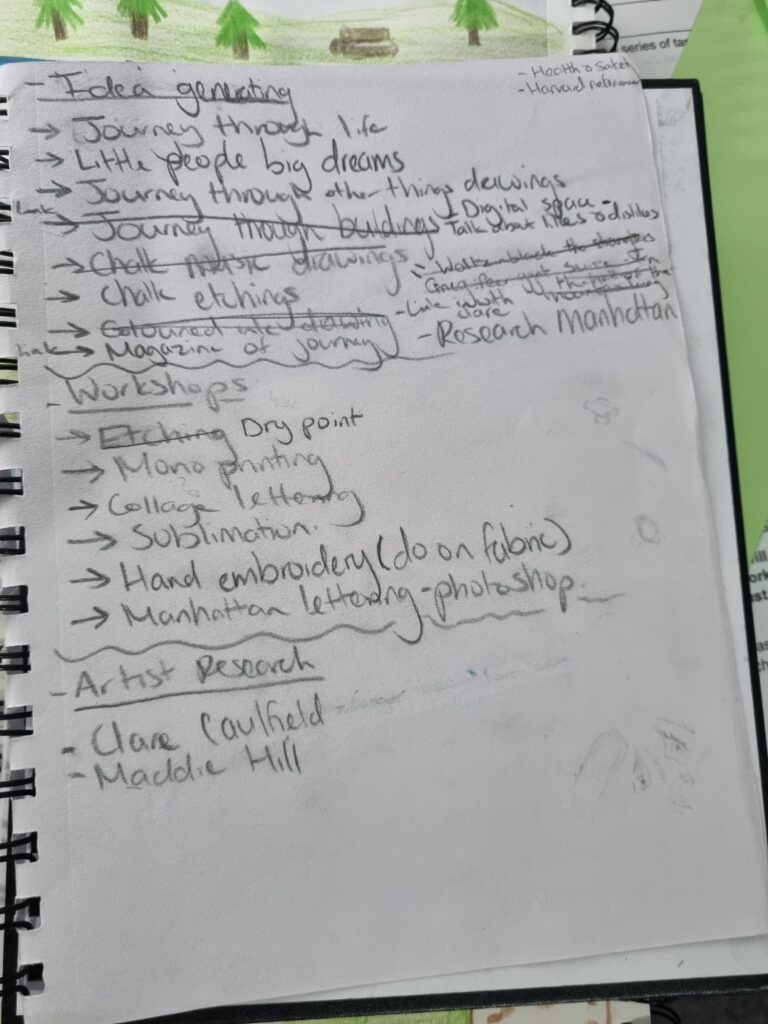 series of ta
- Health & Safet
- Harvard reference
- Idea generating
→ Journey through life
→ Little people big dreams
→ Journey through other things drawings
Link
→ Journey though buildings
- Digital space -
Talk about likes & dislikes
→ Chalk music drawings
→ Chalk etchings
- Link in with
Clare
→ Coloured ink drawing
- Research Manhattan
Link → Magazine of journey
- Workshops
→ Etching Dry point
→ Mono printing
→ Collage lettering
→ Sublimation.
→ Hand embroidery (do on fabric)
→ Manhattan lettering - photoshop.
- Artist Research
- Clare Caulfield
- Maddie Hill